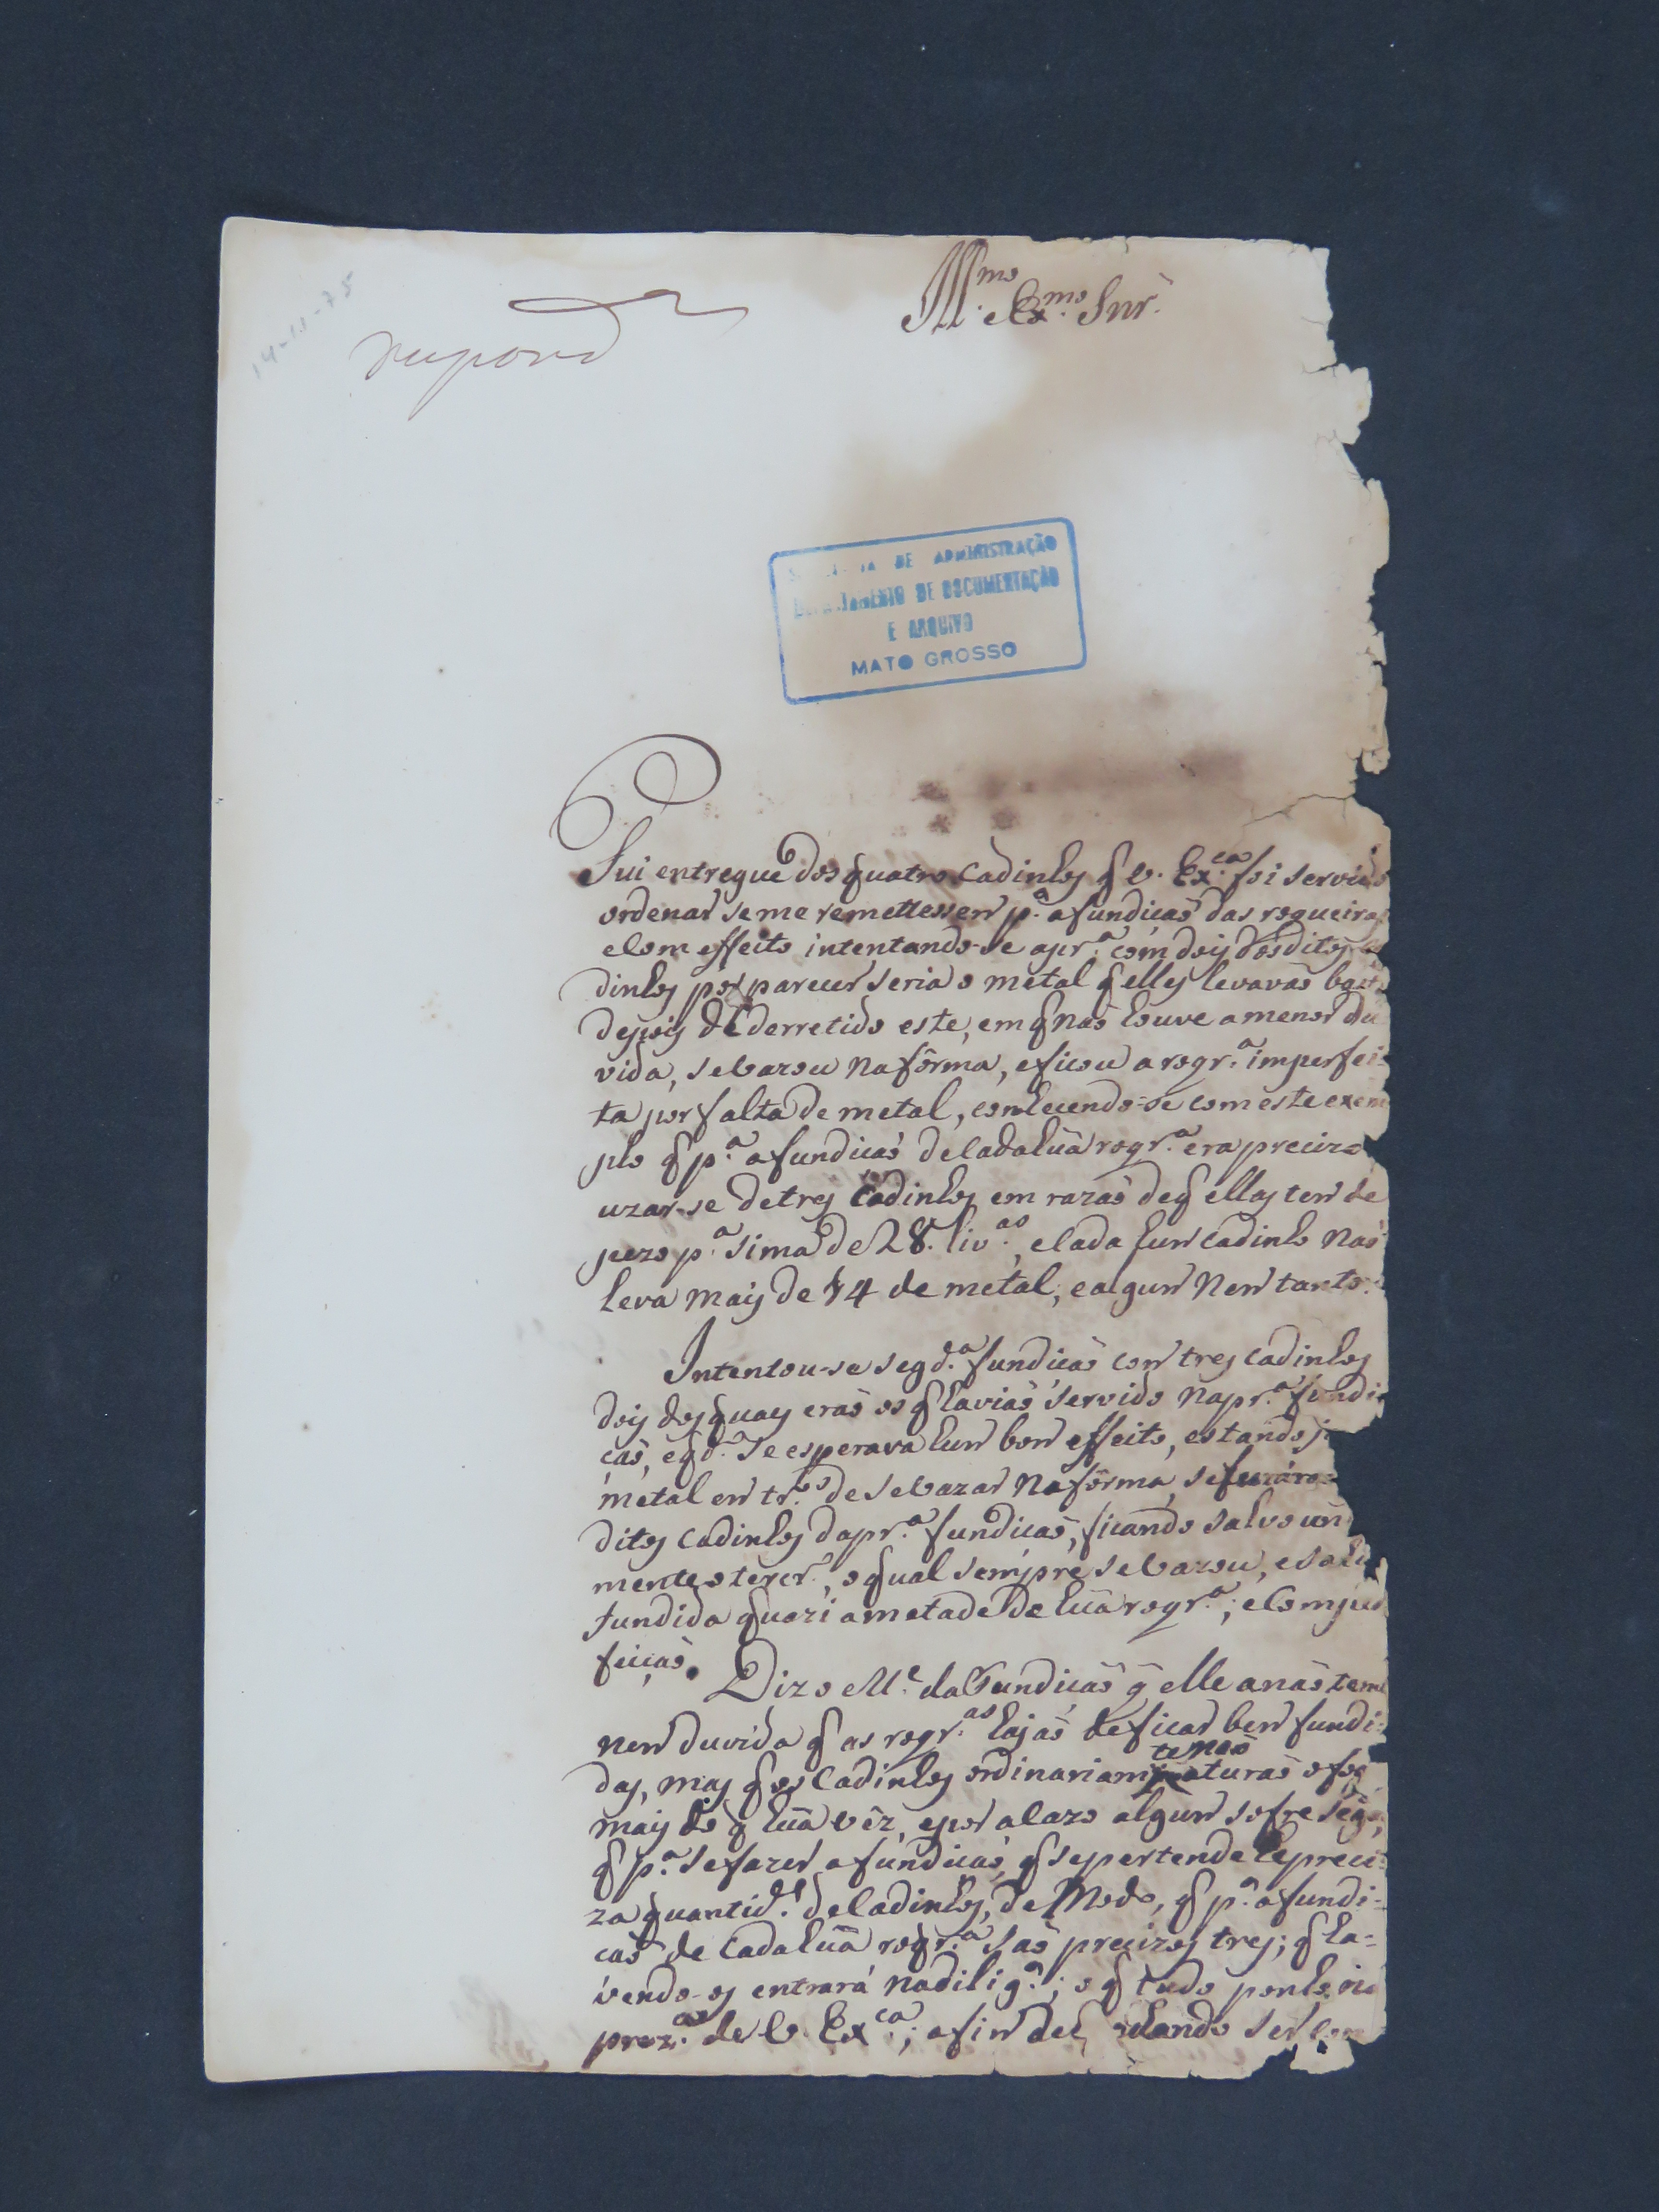 Ill.mo Ex.mo Snr.
14-11-75
DE ADMINISTRAÇÃO
DE DOCUMENTAÇÃO
E ARQUIVO
MATO GROSSO
Fui entregue dos quatro cadinhos q̃ V. Ex.ca foi servido
ordenar se me remettessem p.a a fundicaõ das roqueiras
e com effeito intentando-se a pr.a com dois dos ditos
dinhos por parecer seria o metal q̃ elles levavaõ
depois de derretido este, em q̃ naõ houve a menor du
vida, se vazou na fôrma, e ficou a roqr.a imperfei-
ta por falta de metal, conhecendo-se com este exem
plo q̃ p.a a fundicaõ de cada huã roqr.a era precizo
uzar-se de tres Cadinhos em razaõ de q̃ ellas tem de
pezo p.a sima de 28. liv.as, e cada hum cadinho naõ
leva mais de 14 de metal, e algum nem tanto.
Intentou-se seg.da fundicaõ com tres cadinhos
dois dos quaes eraõ os q̃ haviaõ servido na pr.a fundi
caõ, e qd.o se esperava hum bom effeito, estando
metal em tr.os de se vazar na fôrma, se
ditos cadinhos da pr.a fundicaõ, ficando salvo
mente o tercr.o, o qual sempre se vazou, e
fundida quazi a metade de huã roqr.a, e com
feicaõ.
Diz o M.e da Fundicaõ q̃ elle a naõ tem
nem duvida q̃ as roqr.as hajaõ de ficar bem fundi-
das, mas q̃ os Cadinhos ordinariam.te naõ aturaõ o fog
mais do q̃ huã vêz, e por acazo algum sofre seg.da,
q̃ p.a se fazer a fundicaõ, q̃ se pertende he preci-
za quantid.e de Cadinhos, de Modo, q̃ p.a a fundi-
caõ de cada huã roqr.a saõ precizos tres; q̃ ha-
vendo-os entrará na dilig.a; o q̃ tudo ponho na
prez.a de V. Ex.ca; afim de q̃ ser